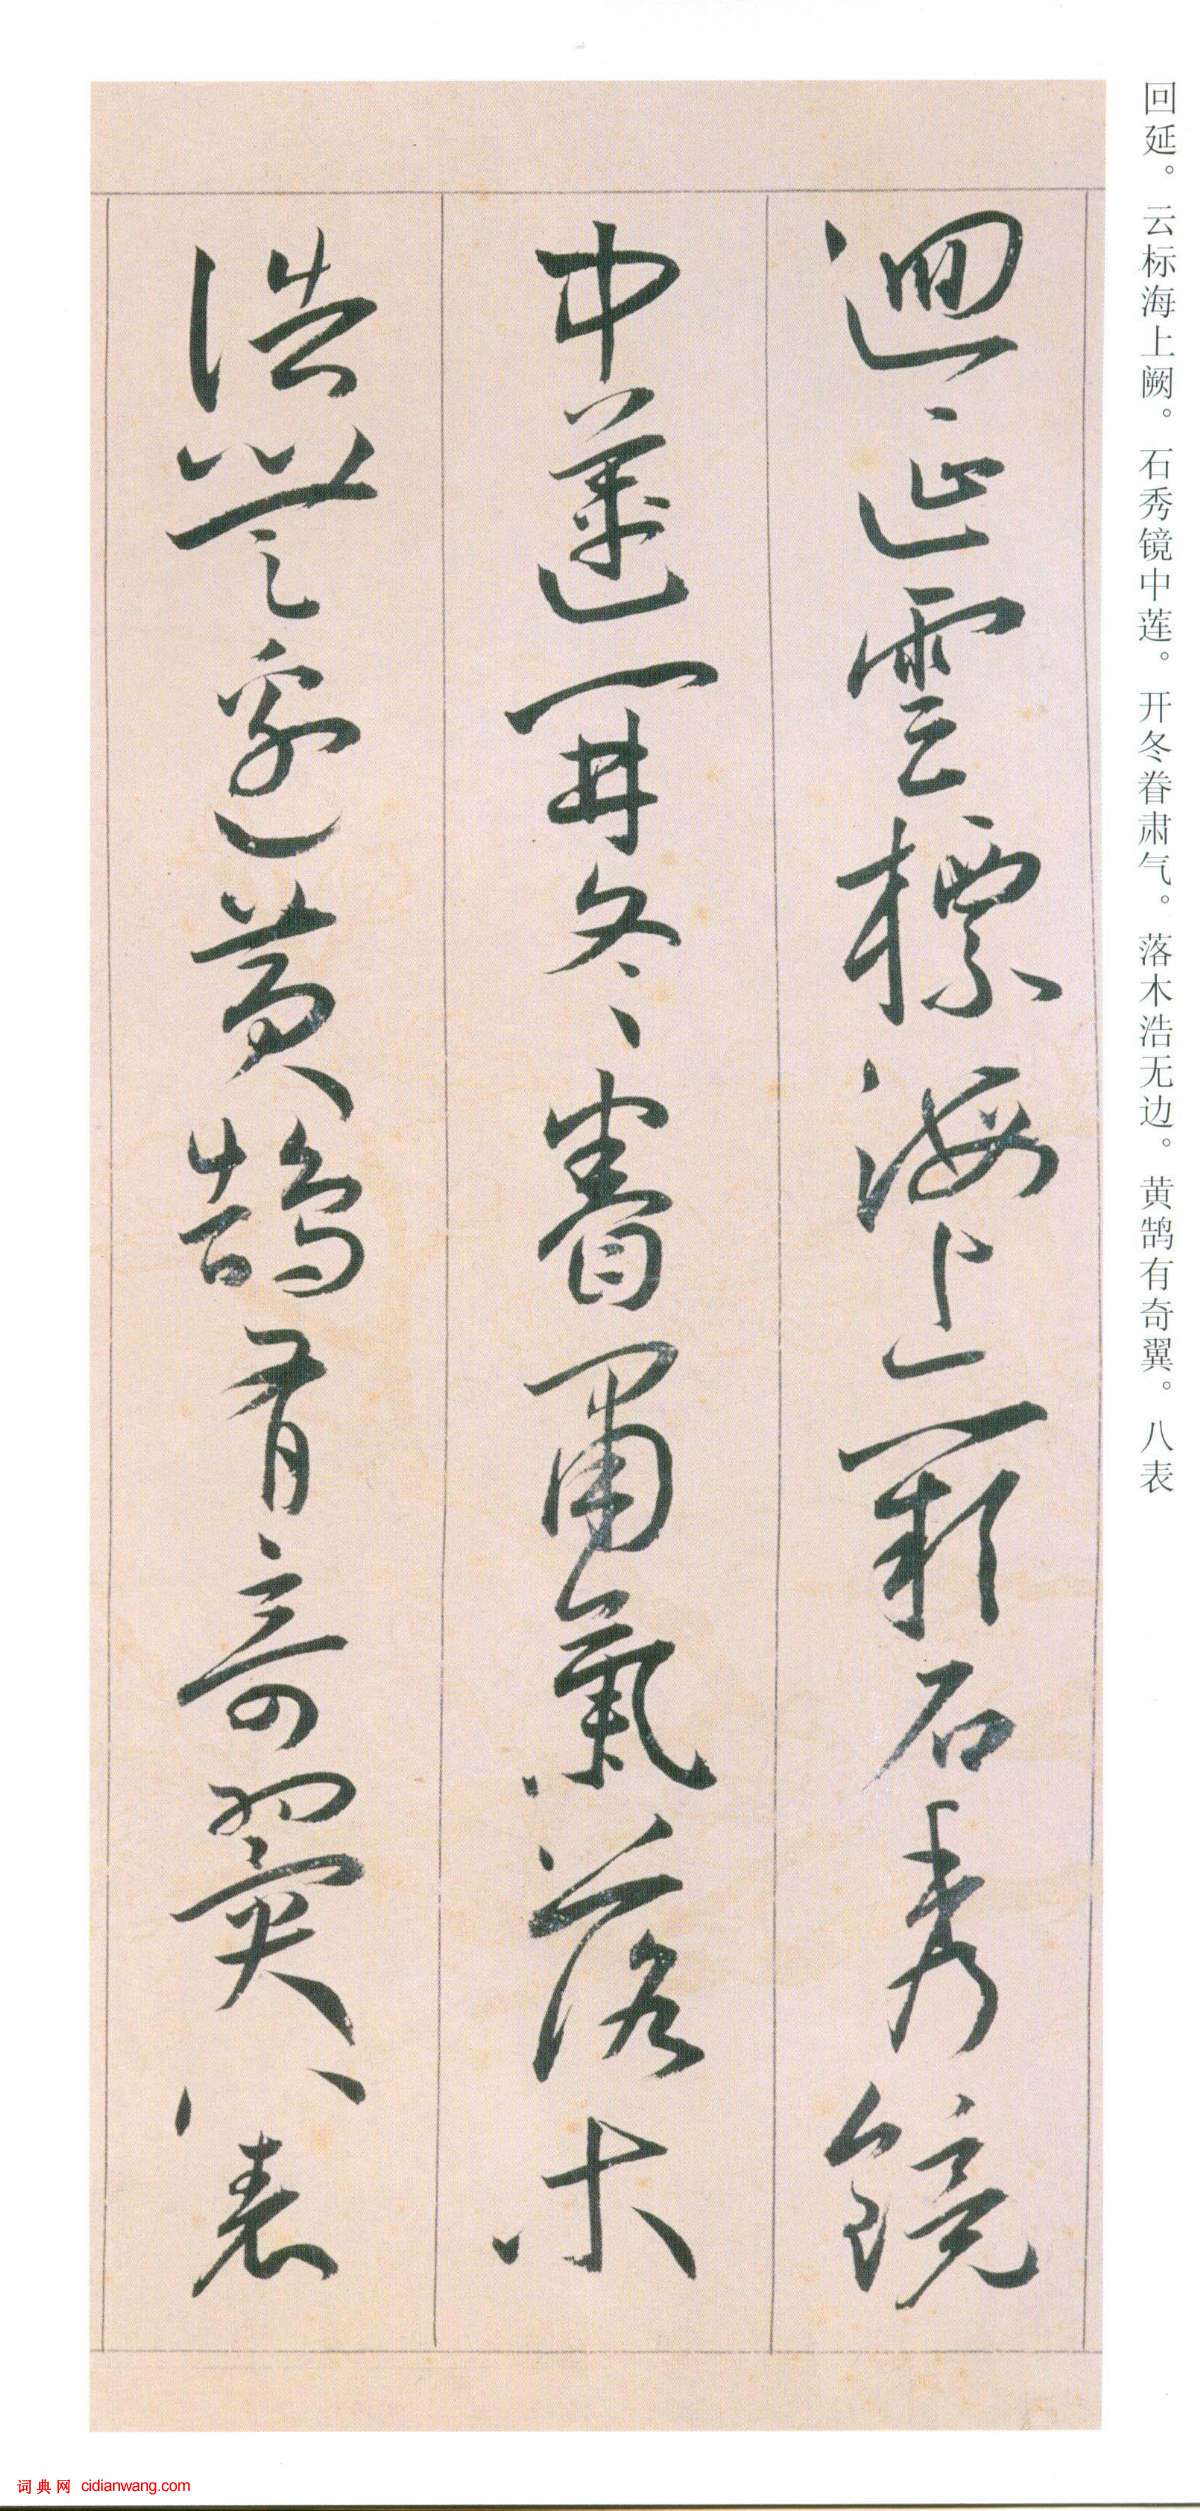 回延。云标海上阙。石秀镜中莲。开冬眷肃气。落木浩无边。黄鹄有奇翼。八表
迴延雲標海上闕石秀鏡
中蓮開冬眷肅氣落木
浩無邊黄鵠有奇翼八表
词典网 cidianwang.com